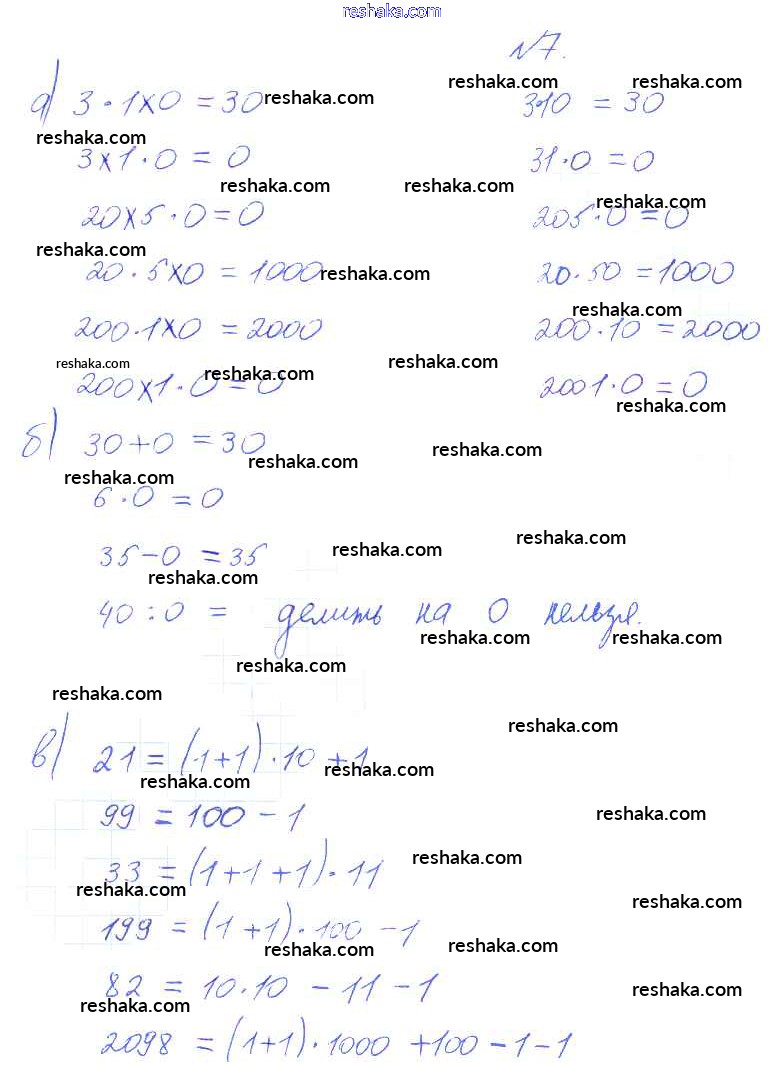 reshaka.com
№7.
а) 3 · 1 x 0 = 30 reshaka.com
3·10 = 30 reshaka.com reshaka.com
reshaka.com
3 x 1 · 0 = 0
31 · 0 = 0
reshaka.com reshaka.com
20 x 5 · 0 = 0
205 · 0 = 0 reshaka.com
reshaka.com
20 · 5 x 0 = 1000 reshaka.com
20 · 50 = 1000
reshaka.com
200 · 1 x 0 = 2000
200 · 10 = 2000
reshaka.com reshaka.com
200 x 1 · 0 = 0 reshaka.com
2001 · 0 = 0
reshaka.com
б) 30 + 0 = 30
reshaka.com reshaka.com
reshaka.com
6 · 0 = 0
35 - 0 = 35 reshaka.com reshaka.com
reshaka.com
40 : 0 = делить на 0 нельзя.
reshaka.com reshaka.com
reshaka.com
reshaka.com
в) 21 = (1+1) · 10 + 1
reshaka.com reshaka.com
99 = 100 - 1 reshaka.com
33 = (1+1+1) · 11 reshaka.com
reshaka.com reshaka.com
199 = (1+1) · 100 - 1
reshaka.com reshaka.com
82 = 10 · 10 - 11 - 1 reshaka.com
reshaka.com
2098 = (1+1) · 1000 + 100 - 1 - 1